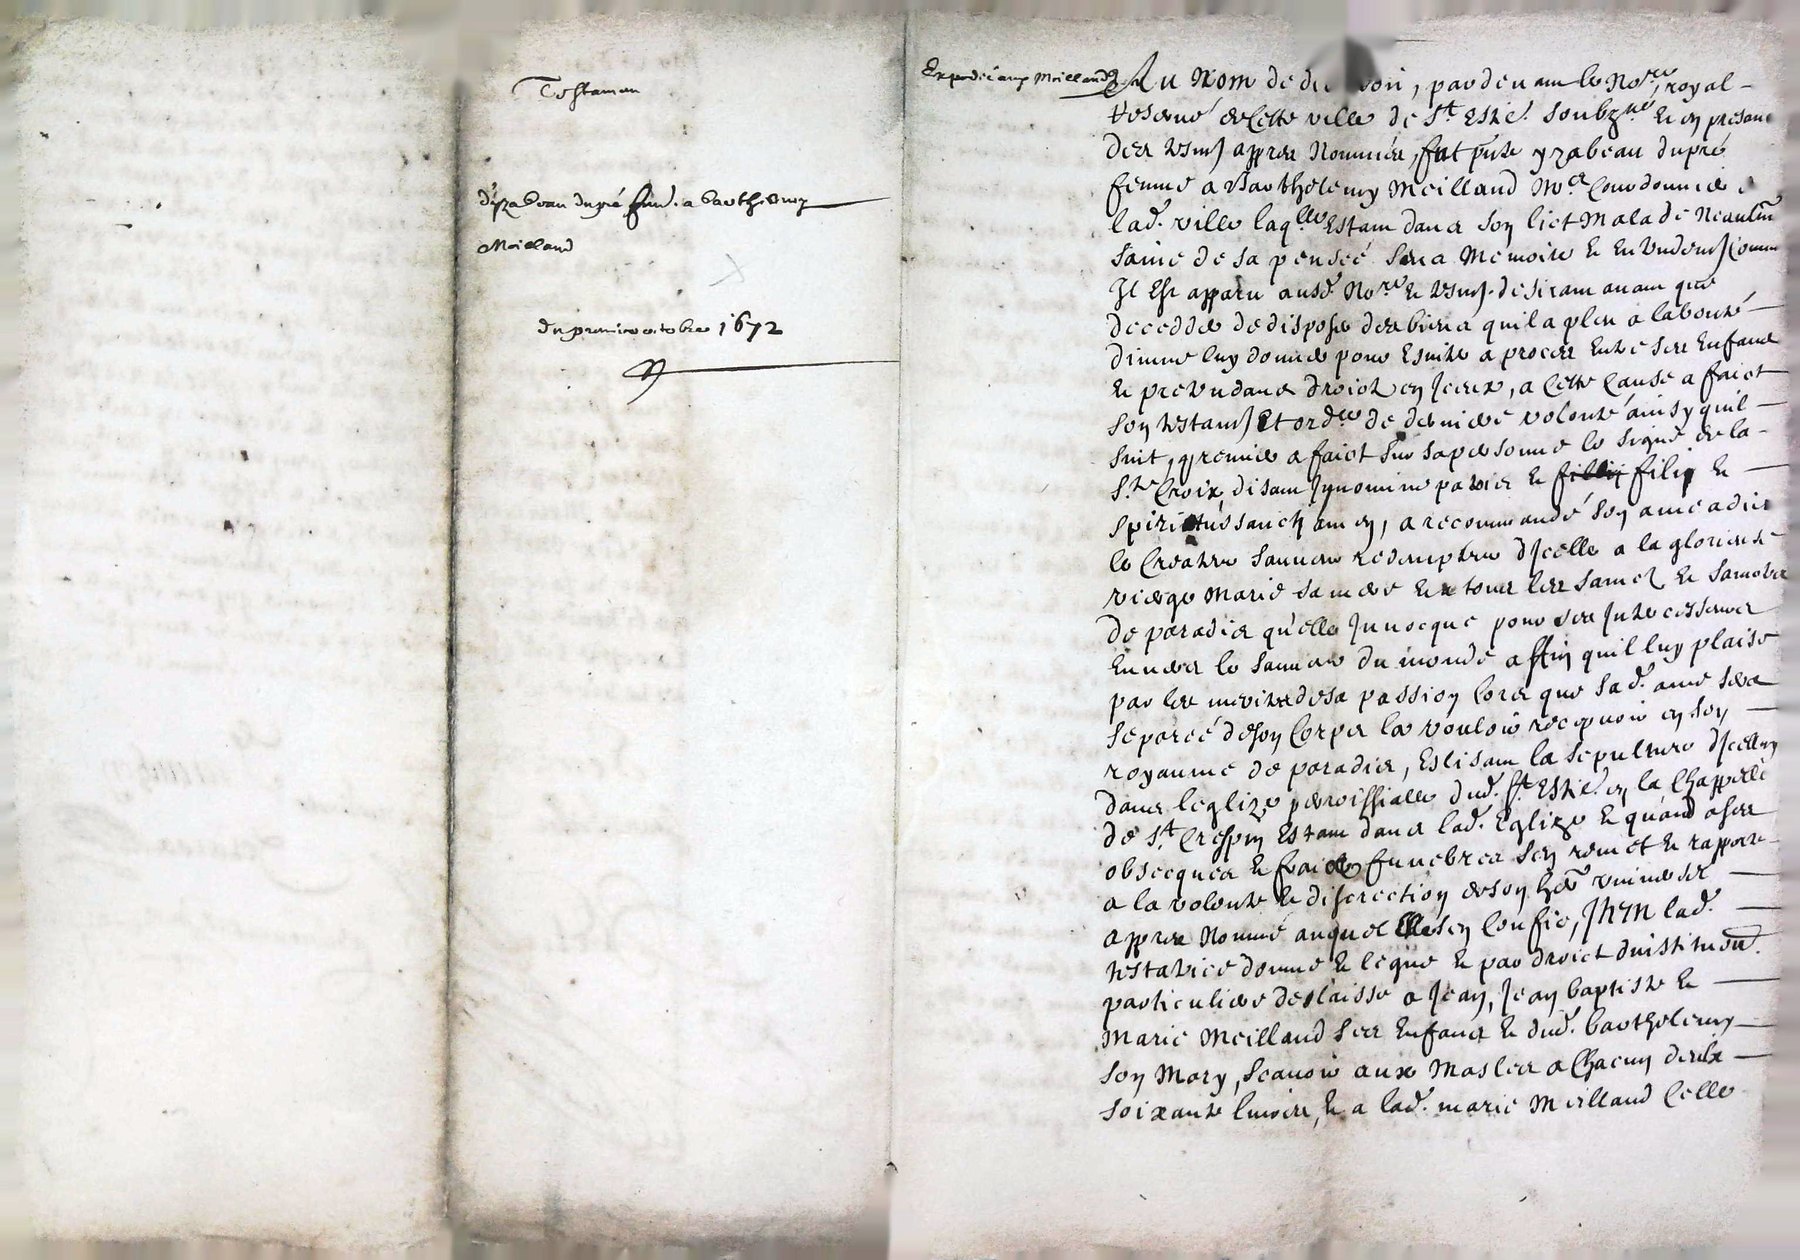 Testaman
d'yzabeau dupré femme a barthelemy
Meilland
du premier octobre 1672
Expedié aux Meilland
Au Nom de dieu soit, pardevant le No.re royal
reservé de cette ville de S.t Estie. soubz.né Et en presance
des tesm. appres Nommés, fut p.nte yzabeau dupré
femme a Barthelemy Meilland M.e Cordonnier
lad. ville laq.lle Estant dans son lict Malade Neantm̃
saine de sa pensée sens Memoire Et Entendem. Comme
Il Est apparu ausd. No.re Et tesm. desirant avant que
decedder de disposer des biens quil a pleu a la bonté
divine luy donner pour Esviter a proces Entre ses Enfans
Et pretendans droict en Iceux, a Cette Cause a faict
son testam. Et ord.ce de derniere volonté ainsy quil
suit, premier a faict sur sa personne le signe de la
S.te Croix, disant Jn nomine patris Et filii filii Et
spiritus sancti amen, a recommandé son ame a dieu
le Createur sauveur redempteur d'Jcelle a la glorieuse
vierge Marie sa mere Et a tous les saincts Et sainctes
de paradis qu'elle Jnvocque pour ses Jntercesseurs
Envers le sauveur du monde affin quil luy plaise
par les merites de sa passion lors que sad. ame sera
separée de son Corps la vouloir recepvoir en son
royaume de paradis, Eslisant la sepulture d'Jcelluy
dans leglize parroissialle dud. S.t Estie. en la Chappelle
de S.t Crespin Estant dans lad. Eglize Et quand a ses
obsecques Et frais funebres sen remet Et rapporte
a la volonté Et discrection de son her. universel
appres Nommé auquel Elle sen Confie, Jtem lad.
testatrice donne Et legue Et par droict dinstitu.on
particuliere deslaisse a Jean, Jean baptiste Et
Marie Meilland ses Enfans Et dud. barthelemy
son Mary, scavoir aux Masles a Chacun d'eulx
soixante livres, Et a lad. marie Meilland Celle